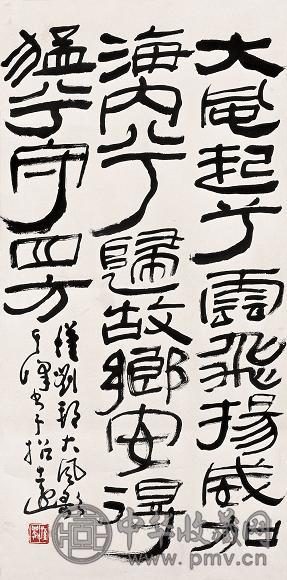 大風起兮雲飛揚威加
海内兮歸故鄉安得
猛兮守四方
漢劉邦大風歌
書于
中华收藏网
www.pmv.cn